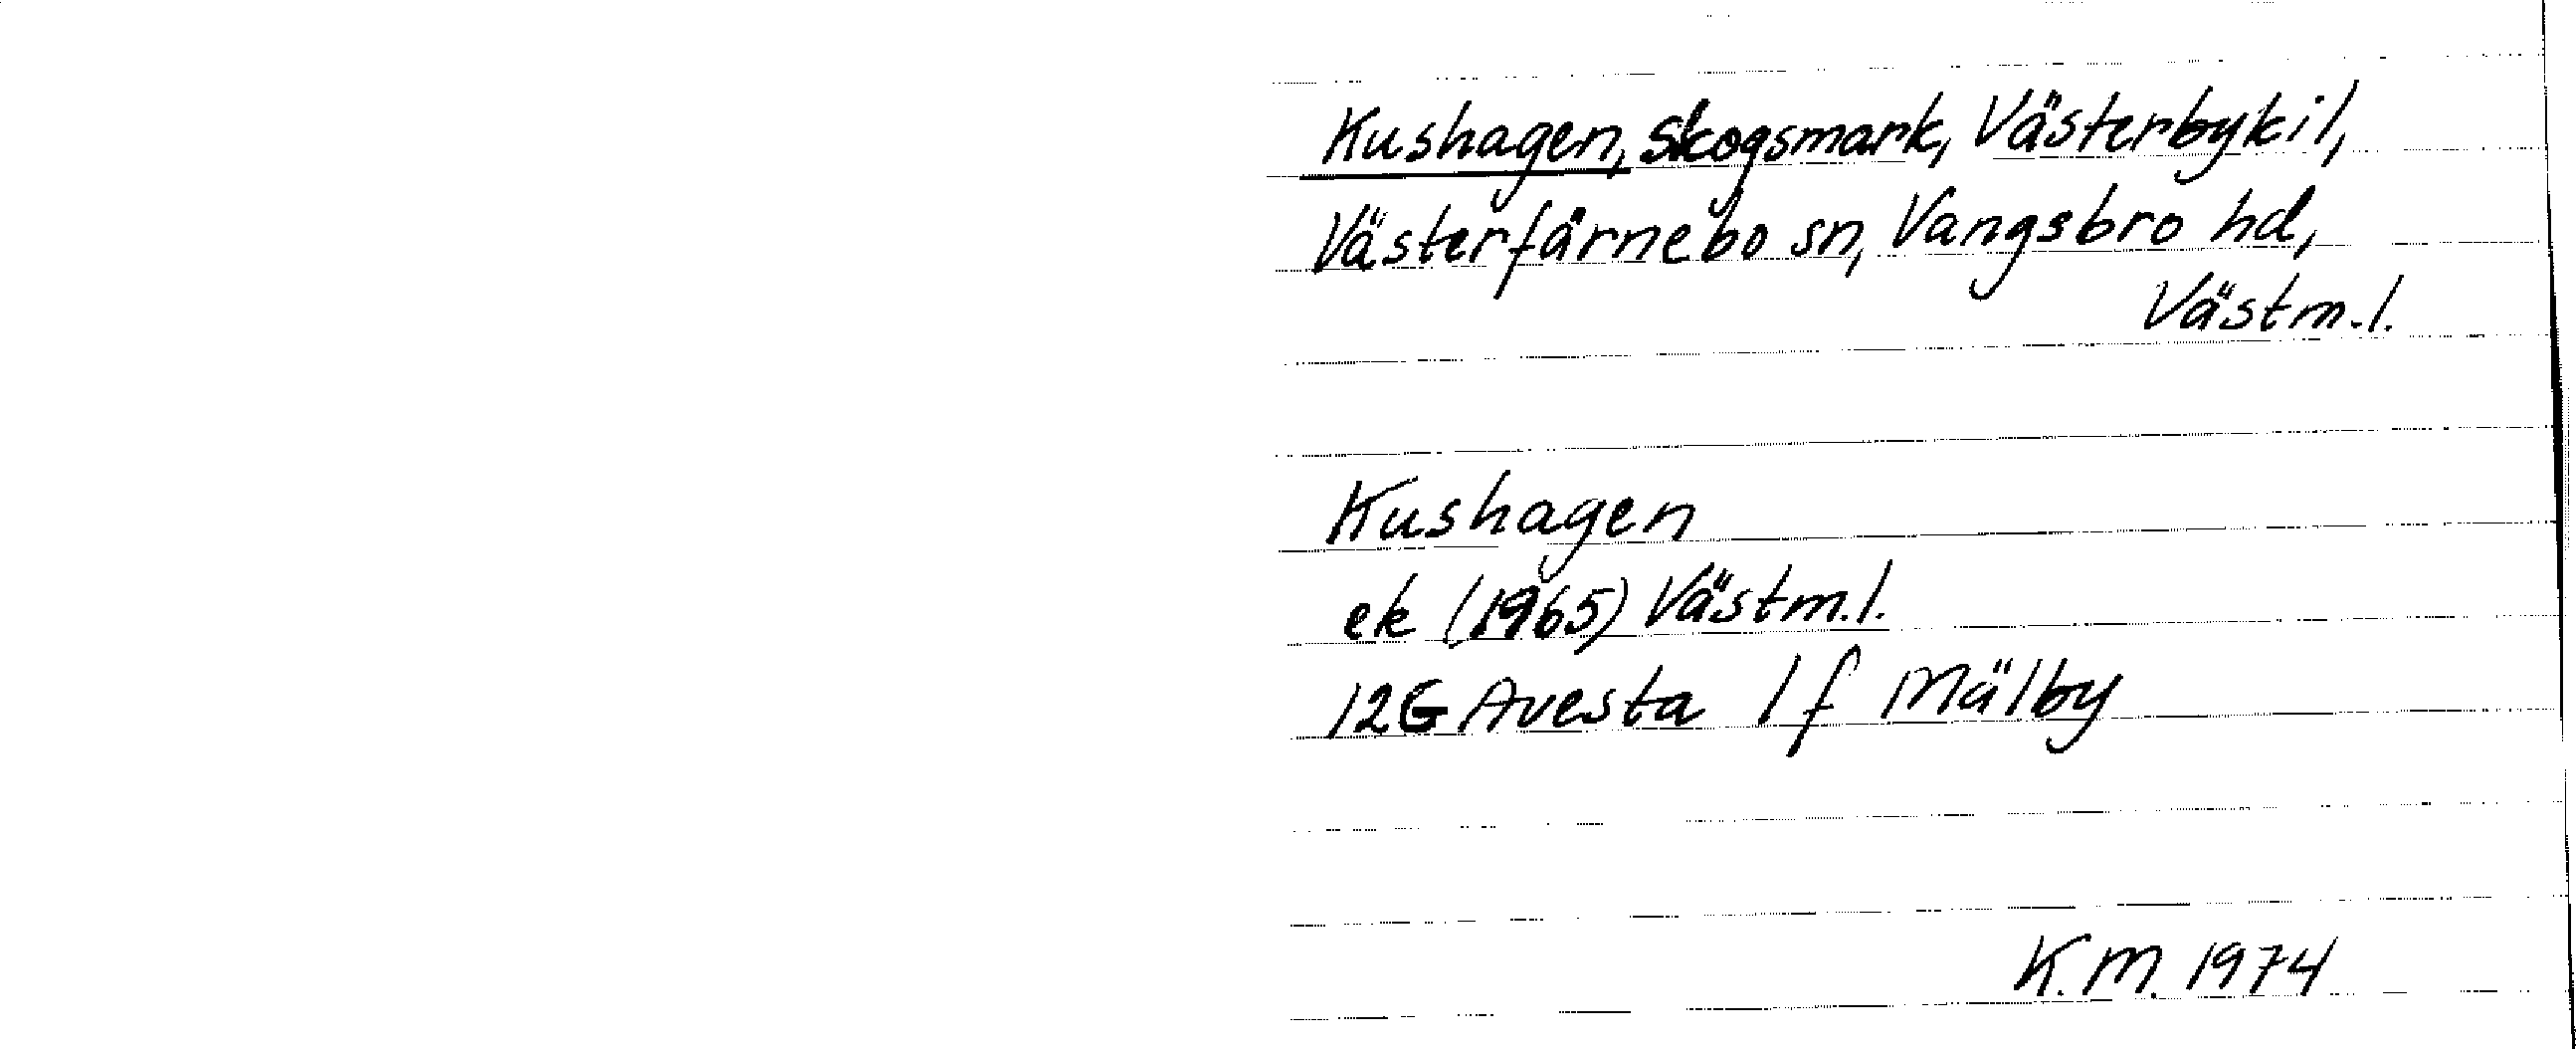 Kushagen, Skogsmark, Västerbykil,
Västerfärnebo sn, Vangsbro hd,
Västm.l.
Kushagen
ek (1965) Västm.l.
12G Avesta 1f Mälby
K.M. 1974